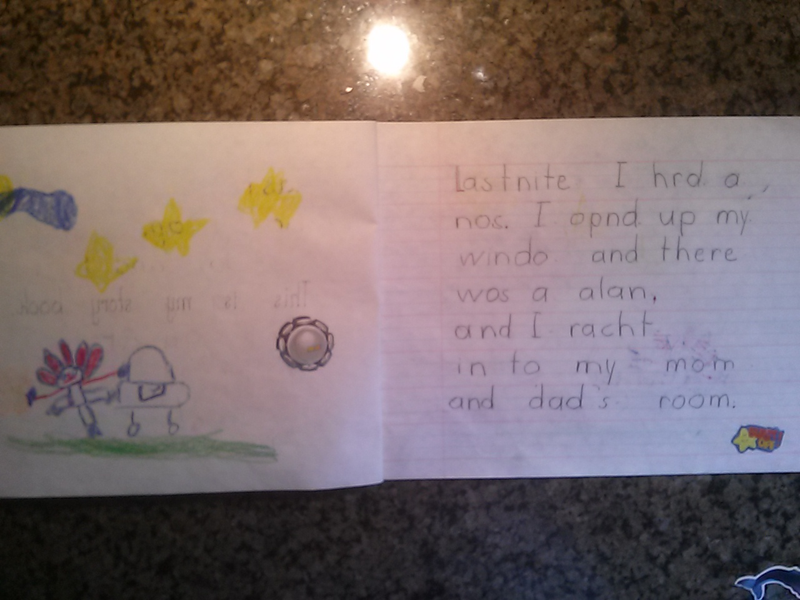 This is my story book.
Lastnite I hrd a
nos. I opnd up my
windo and there
was a alan,
and I racht
in to my mom
and dad's room.